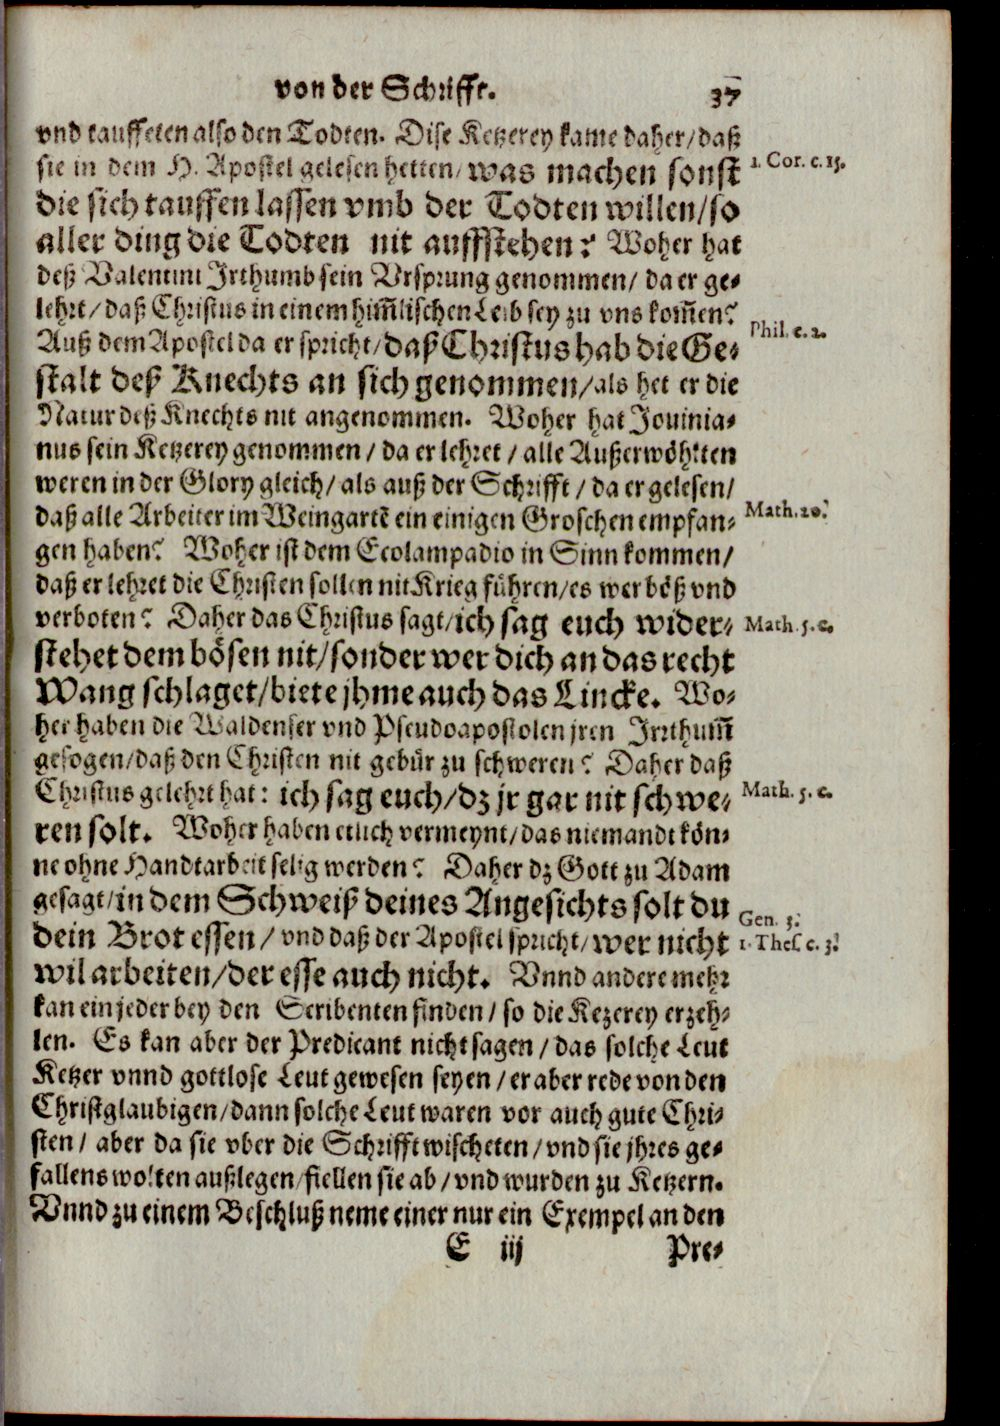 von der Schrifft. 37
vnd tauffeten also den Todten. Dise Ketzerey kame daher/ daß
sie in dem H. Apostel gelesen hetten/ was machen sonst
1. Cor. c. 15.
die sich tauffen lassen vmb der Todten willen/ so
aller ding die Todten nit auffstehen? Woher hat
deß Valentini Irthumb sein Vrsprung genommen/ da er ge-
lehrt/ daß Christus in einem him̃lischen Leib sey zu vns kom̃en?
Phil. c. 2.
Auß dem Apostel da er spricht/ daß Christus hab die Ge-
stalt deß Knechts an sich genommen/ als het er die
Natur deß Knechts nit angenommen. Woher hat Jouinia-
nus sein Ketzerey genommen/ da er lehret/ alle Außerwöhlten
weren in der Glory gleich/ als auß der Schrifft/ da er gelesen/
daß alle Arbeiter im Weingartẽ ein einigen Groschen empfan-
Math. 20.
gen haben? Woher ist dem Ecolampadio in Sinn kommen/
daß er lehret die Christen sollen nit Krieg führen/ es wer böß vnd
verboten? Daher das Christus sagt/ ich sag euch wider-
Math. 5. c.
stehet dem bösen nit/ sonder wer dich an das recht
Wang schlaget/ biete jhme auch das Lincke. Wo-
her haben die Waldenser vnd Pseudoapostolen jren Irrthum̃
gesogen/ daß den Christen nit gebür zu schweren? Daher daß
Christus gelehrt hat: ich sag euch/ dz jr gar nit schwe-
Math. 5. c.
ren solt. Woher haben etlich vermeynt/ das niemandt kön-
ne ohne Handtarbeit selig werden? Daher dz Gott zu Adam
gesagt/ in dem Schweiß deines Angesichts solt du
Gen. 3.
dein Brot essen/ vnd daß der Apostel spricht/ wer nicht
1. Thes. c. 3.
wil arbeiten/ der esse auch nicht. Vnnd andere mehr
kan ein jeder bey den Scribenten finden/ so die Kezerey erzeh-
len. Es kan aber der Predicant nicht sagen/ das solche Leut
Ketzer vnnd gottlose Leut gewesen seyen/ er aber rede von den
Christglaubigen/ dann solche Leut waren vor auch gute Chri-
sten/ aber da sie vber die Schrifft wischeten/ vnd sie jhres ge-
fallens wolten außlegen/ fiellen sie ab/ vnd wurden zu Ketzern.
Vnnd zu einem Beschluß neme einer nur ein Exempel an den
E iij Pre-